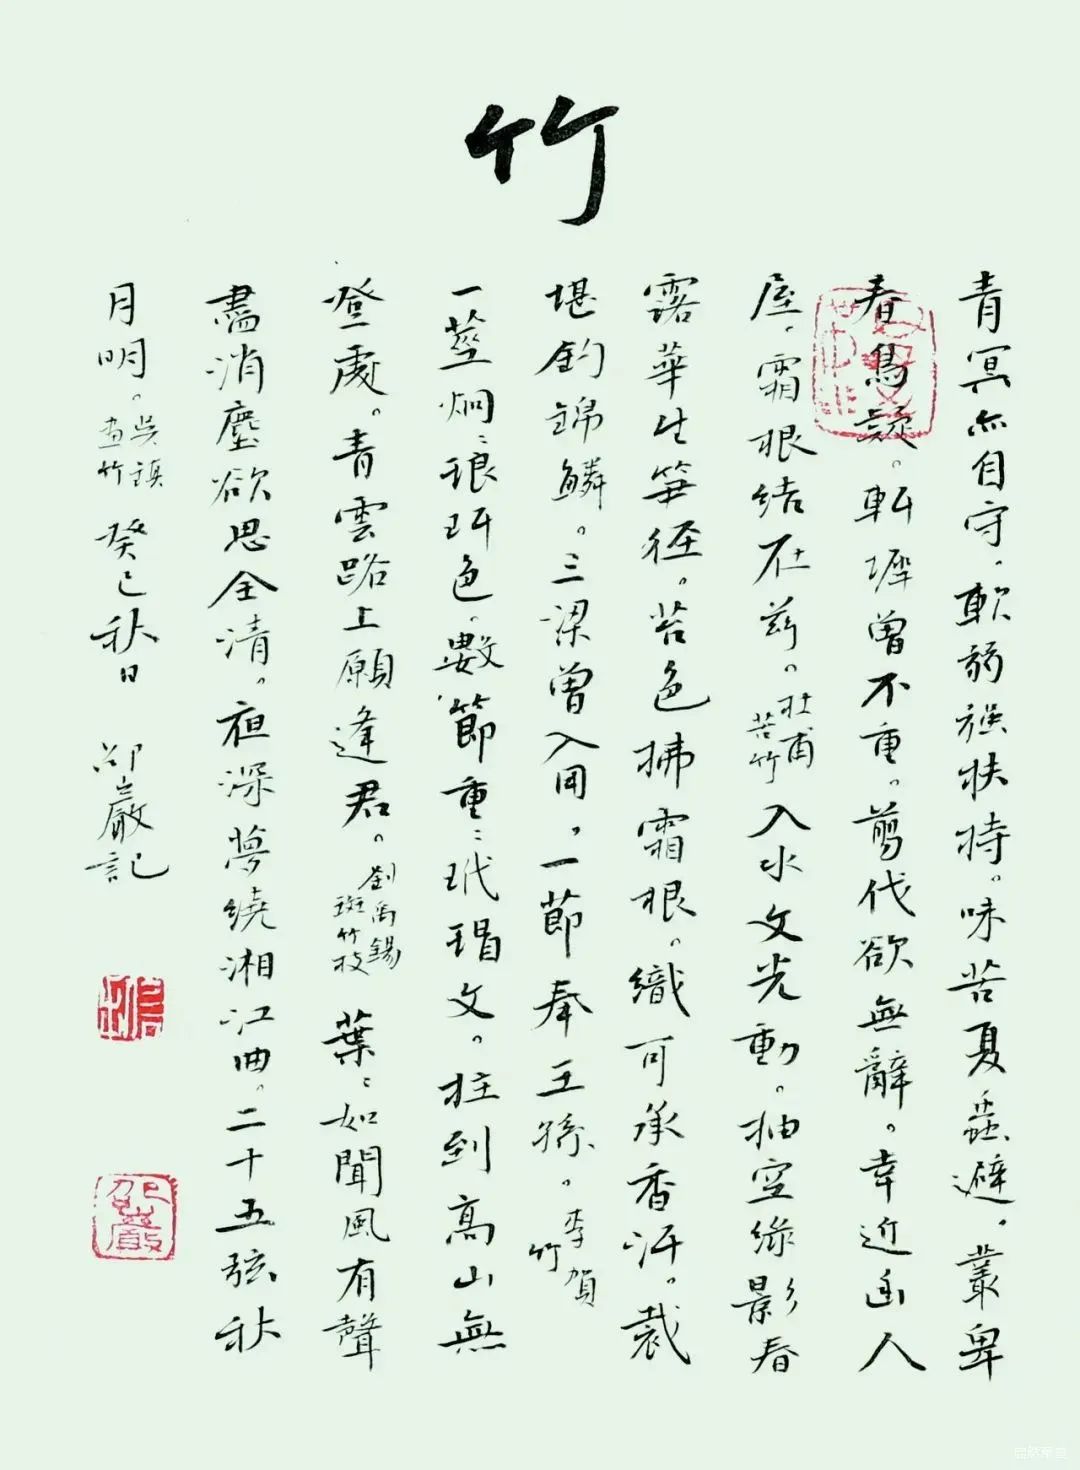 竹
青冥亦自守，軟弱強扶持。味苦夏蟲避，叢卑
春鳥疑。軒墀曾不重。剪伐欲無辭。幸近幽人
屋，霜根結在茲。杜甫苦竹 入水文光動。抽空綠影春
露華生笋徑。苔色拂霜根。織可承香汗。裁
堪釣錦鱗。三梁曾入用，一節奉王孫。李賀竹
一莖炯〻琅玕色，數節重〻玳瑁文。拄到高山無
登處。青雲路上願逢君。劉禹錫斑竹枝 葉〻如聞風有聲
盡消塵欲思全清。夜深夢繞湘江曲。二十五弦秋
月明。吳鎮畫竹 癸巳秋日 邵巖記
邵巖